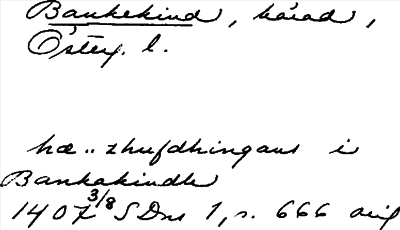 Bankekind, härad,
Österg. l.
hæ..zhufdhingans i
Bankakindh
1407 3/8 SDns 1, s. 666 avs